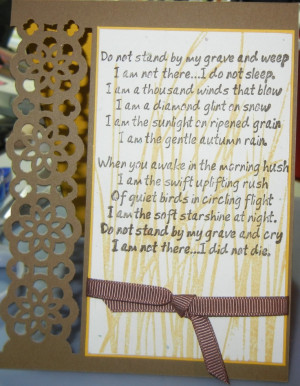 Do not stand by my grave and weep
I am not there...I do not sleep.
I am a thousand winds that blow
I am a diamond glint on snow
I am the sunlight on ripened grain
I am the gentle autumn rain.
When you awake in the morning hush
I am the swift uplifting rush
Of quiet birds in circling flight
I am the soft starshine at night.
Do not stand by my grave and cry
I am not there...I did not die.